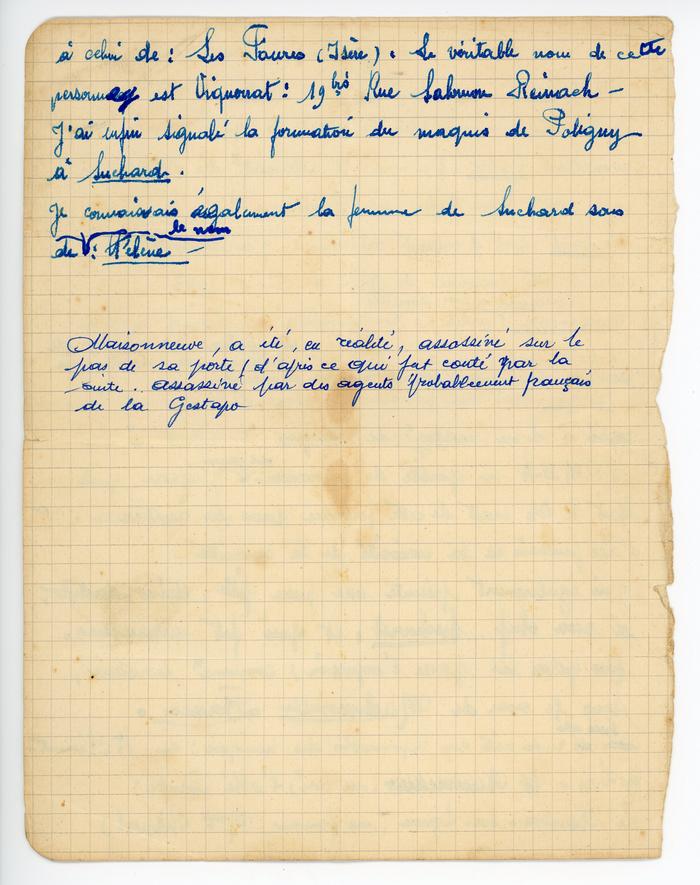 à celui de : Les Faures (Isère) . Le véritable nom de cette
personne est Vignonnat : 19 bis Rue Salomon Reinach -
J'ai enfin signalé la formation du maquis de Poligny
à Suchard .
Je connaissais également la femme de Suchard sous
le nom
de : Hélène -
Maisonneuve , a été , en réalité , assassiné sur le
pas de sa porte ( d'après ce qui fut conté par la
suite . assassiné par des agents probablement français
de la Gestapo